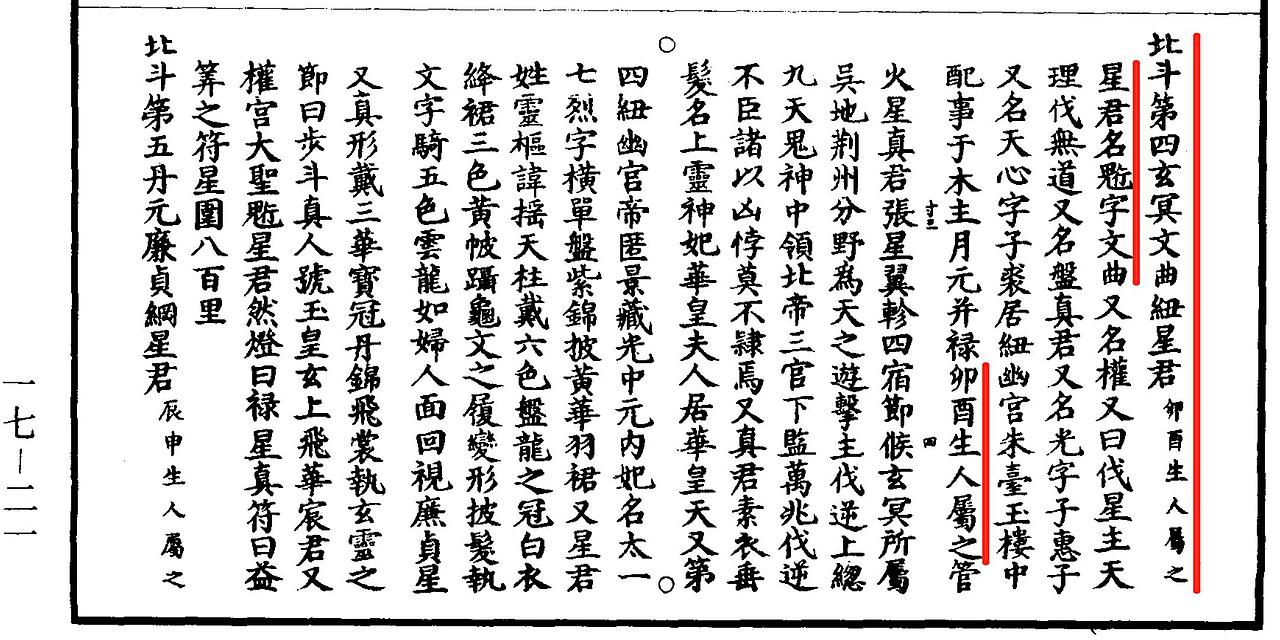 北斗第四玄冥文曲紐星君 卯酉生人屬之
星君名䰢字文曲又名權又曰伐星主天
理伐無道又名盤真君又名光字子惠子
又名天心字子裘居紐幽宮朱臺玉樓中
配事于木主月元并祿卯酉生人屬之管
火星真君張星翼軫四宿節候玄冥所屬
吳地荆州分野為天之遊擊主伐逆上總
九天鬼神中領北帝三官下監萬兆伐逆
不臣諸以凶悖莫不肄焉又真君素衣垂
髮名上靈神妃華皇夫人居華皇天又第
四紐幽宮帝匿景藏光中元內妃名太一
七烈字橫單盤紫錦披黃華羽裙又星君
姓靈樞諱搖天柱戴六色盤龍之冠白衣
絳裙三色黃帔躡龜文之履變形披髮執
文字騎五色雲龍如婦人面回視廉貞星
又真形戴三華寶冠丹錦飛裳執玄靈之
節曰步斗真人號玉皇玄上飛華宸君又
權宮大聖䰢星君然燈曰祿星真符曰益
筭之符星圍八百里
北斗第五丹元廉貞綱星君 辰申生人屬之
一七—二一